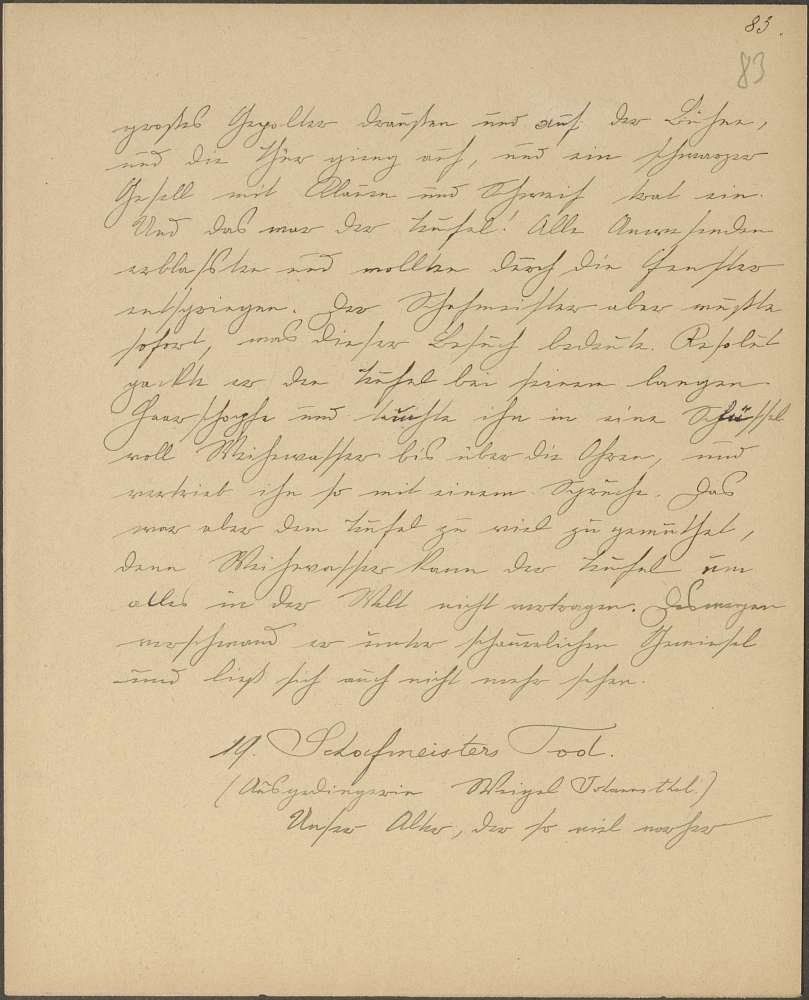 83.
83
großes Gepolter draußen und auf der Bühne,
und die Thür gieng auf, und ein schwarzer
Gesell mit Klauen und Schweif trat ein.
Und das war der Teufel! Alle Anwesenden
erblassten und wollten durch die Fenster
entspringen. Der Schafmeister aber wußte
sofort, was dieser Besuch bedeute. Resolut
packte er den Teufel bei seinem langen
Haarschopfe und tauchte ihn in eine Schüssel
voll Weihwasser bis über die Ohren, und
vertrieb ihn so mit einem Spruche. Das
war aber dem Teufel zu viel zugemuthet,
denn Weihwasser kann der Teufel um
alles in der Welt nicht vertragen. Deswegen
verschwand er unter schauerlichem Gewinsel
und ließ sich auch nicht mehr sehen.
19. Schafmeisters Tod.
(Ausgedingerin Weigel Johannsthal.)
Unser Alter, der so viel vorher